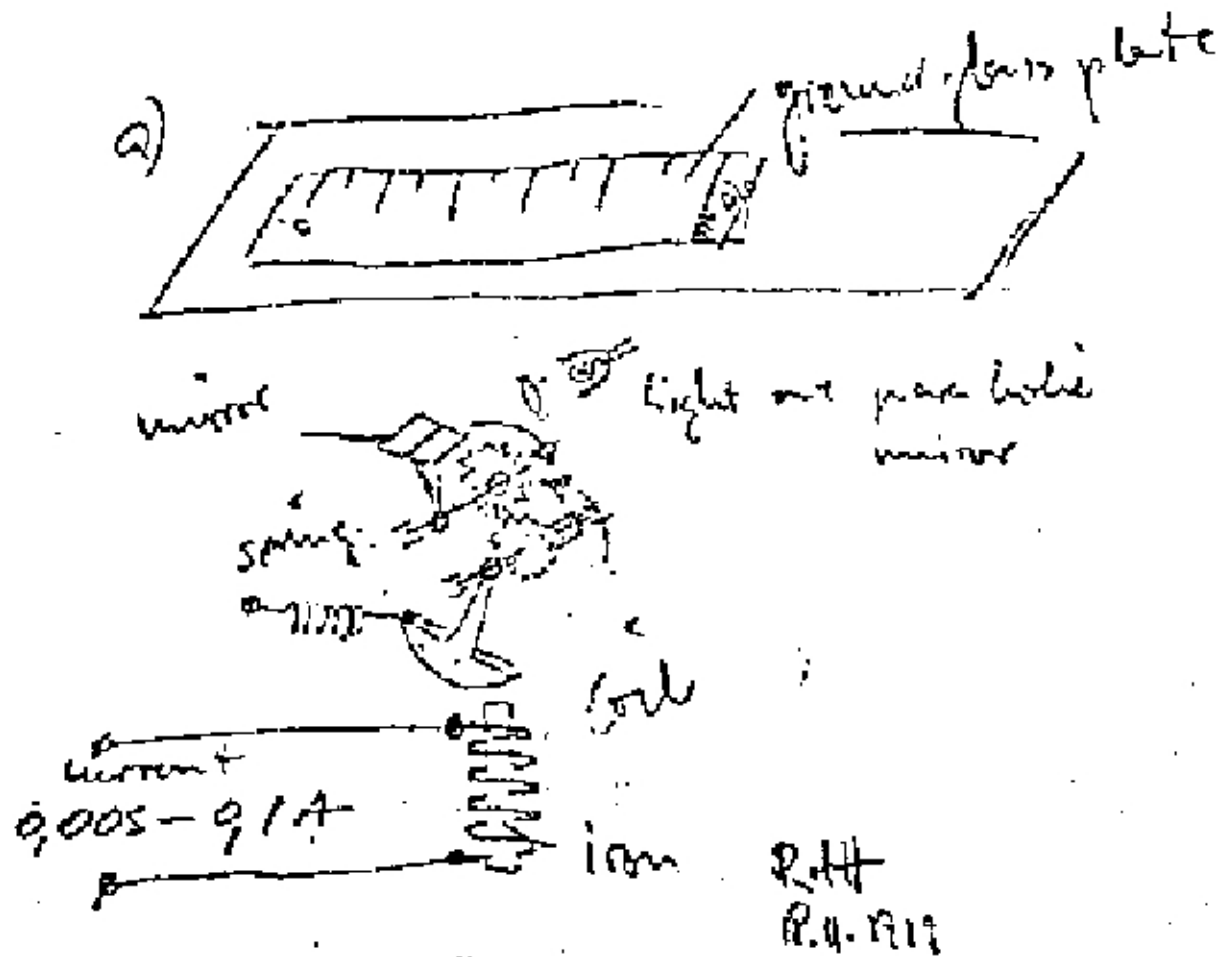 a)
ground-glass plate
mirror
light
mirror
spring
coil
current
0,005 - 0,1 A
iron